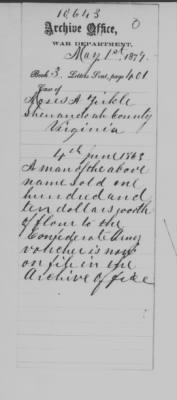 10643
Archive Office,
WAR DEPARTMENT,
May 1st, 1877.
Book 3. Letters Sent, page 401
Case of
Moses A Finkle
Shenandoah County
Virginia
4th June 1863
A man of the above
name sold one
hundred and
ten dollars worth
of flour to the
Confederate Army
voucher is now
on file in the
Archive Office